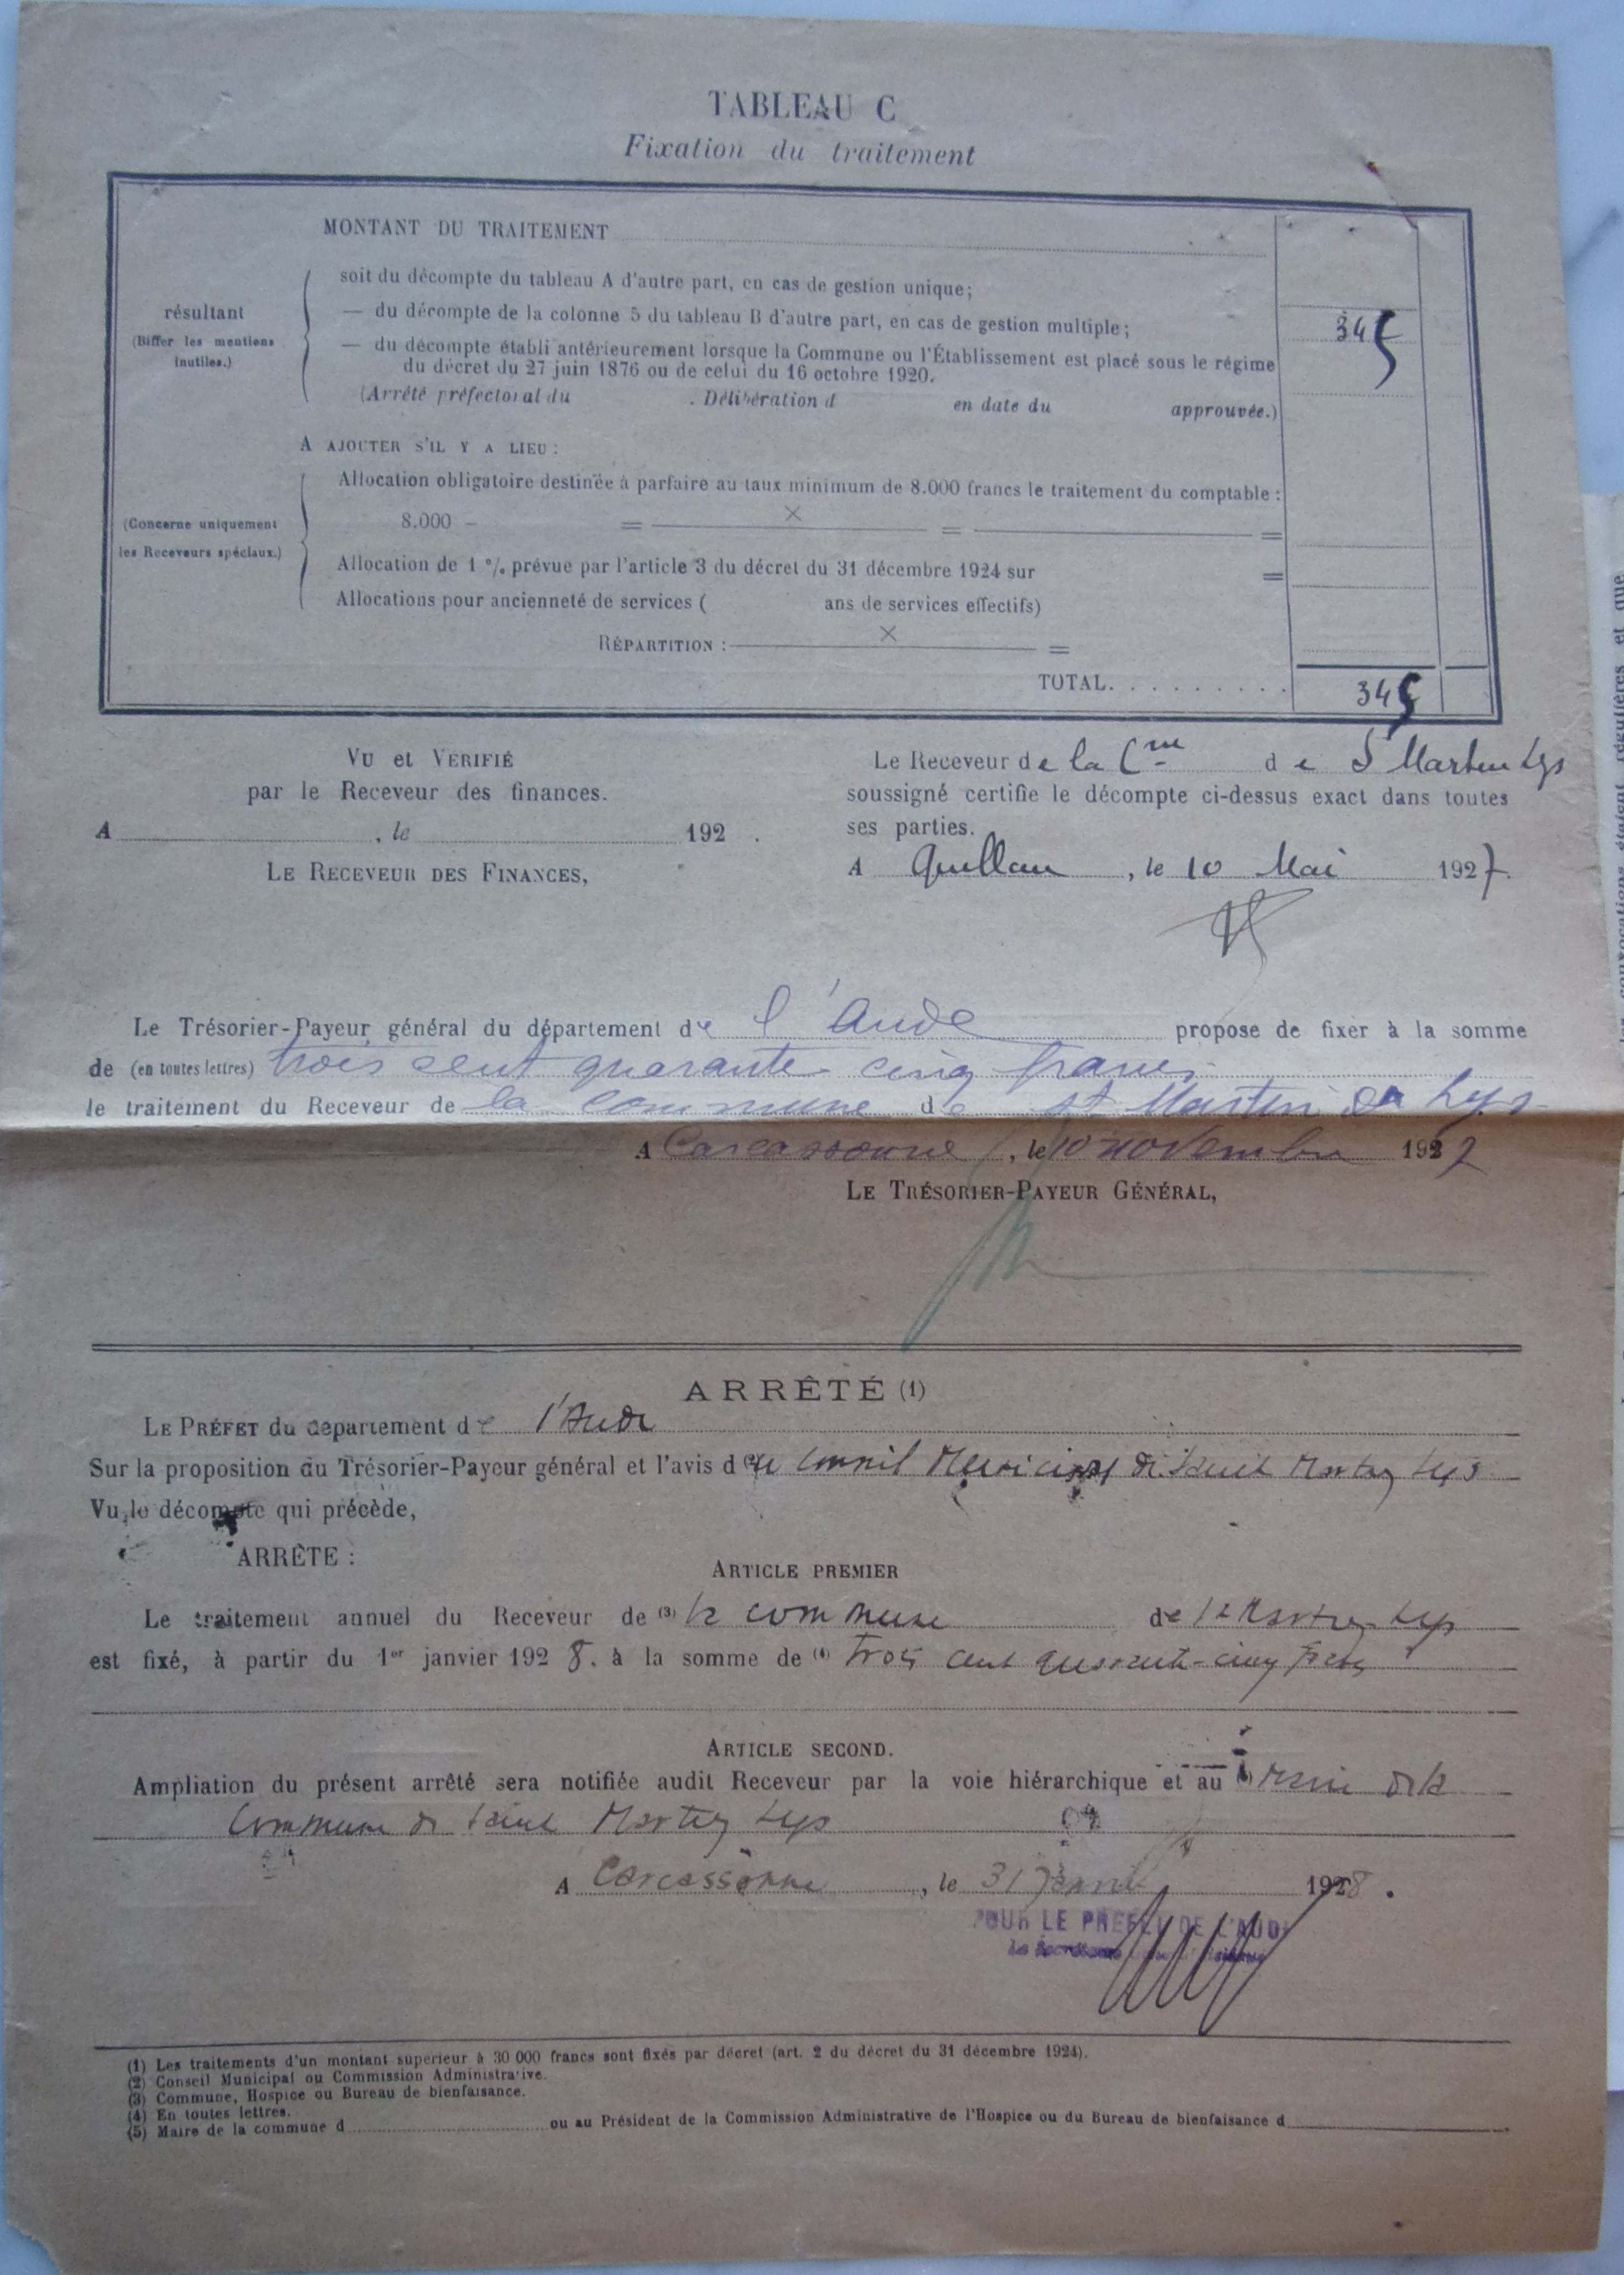 TABLEAU C
Fixation du traitement
MONTANT DU TRAITEMENT
soit du décompte du tableau A d'autre part, en cas de gestion unique;
résultant
(Biffer les mentions inutiles.)
— du décompte de la colonne 5 du tableau B d'autre part, en cas de gestion multiple;
345
— du décompte établi antérieurement lorsque la Commune ou l'Établissement est placé sous le régime
du décret du 27 juin 1876 ou de celui du 16 octobre 1920.
(Arrêté préfectoral du . Délibération d en date du approuvée.)
A AJOUTER S'IL Y A LIEU :
Allocation obligatoire destinée à parfaire au taux minimum de 8.000 francs le traitement du comptable :
(Concerne uniquement
les Receveurs spéciaux.)
8.000 — = × = =
Allocation de 1 % prévue par l'article 3 du décret du 31 décembre 1924 sur =
Allocations pour ancienneté de services ( ans de services effectifs)
RÉPARTITION : × =
TOTAL. . . . . . . . . . 345
VU et VERIFIÉ
par le Receveur des finances.
A , le 192 .
LE RECEVEUR DES FINANCES,
Le Receveur de la Cne de St Martin Lys
soussigné certifie le décompte ci-dessus exact dans toutes
ses parties.
A Quillan , le 10 Mai 1927.
Le Trésorier-Payeur général du département de l'Aude propose de fixer à la somme
de (en toutes lettres) trois cent quarante cinq francs
le traitement du Receveur de la commune de St Martin Lys
A Carcassonne , le 10 novembre 1927
LE TRÉSORIER-PAYEUR GÉNÉRAL,
ARRÊTÉ (1)
LE PRÉFET du département de l'Aude
Sur la proposition du Trésorier-Payeur général et l'avis d (2) u Conseil Municipal de Saint Martin Lys
Vu le décompte qui précède,
ARRÊTE :
ARTICLE PREMIER
Le traitement annuel du Receveur de (3) la commune de St Martin Lys
est fixé, à partir du 1er janvier 1928. à la somme de (4) trois cent quarante-cinq francs
ARTICLE SECOND.
Ampliation du présent arrêté sera notifiée audit Receveur par la voie hiérarchique et au (5) Maire de la
Commune de Saint Martin Lys
A Carcassonne , le 31 Janvier 1928.
POUR LE PRÉFET DE L'AUDE
(1) Les traitements d'un montant supérieur à 30 000 francs sont fixés par décret (art. 2 du décret du 31 décembre 1924).
(2) Conseil Municipal ou Commission Administrative.
(3) Commune, Hospice ou Bureau de bienfaisance.
(4) En toutes lettres.
(5) Maire de la commune d ou au Président de la Commission Administrative de l'Hospice ou du Bureau de bienfaisance d